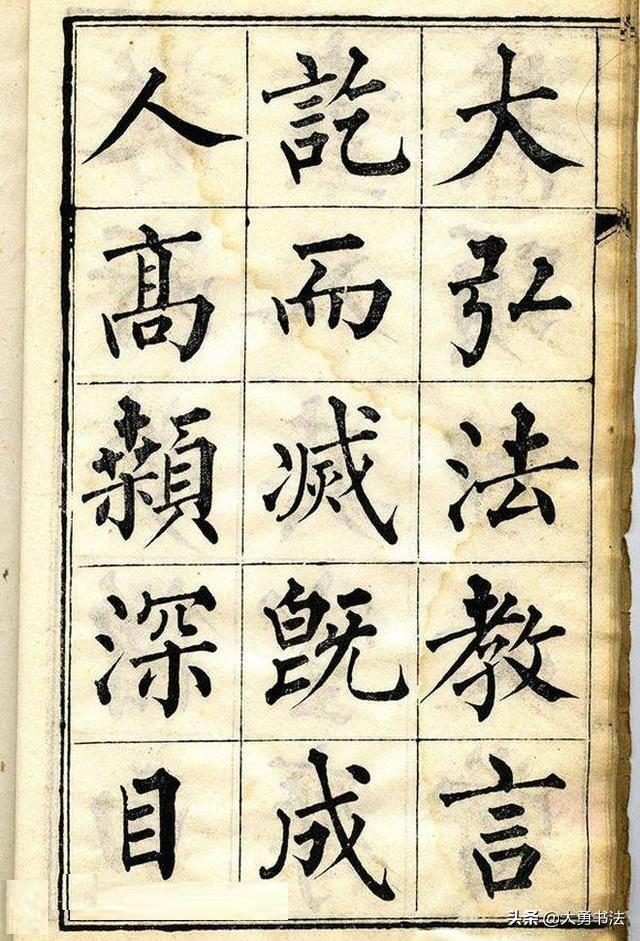 大弘法教言
訖而滅既成
人髙顙深目
头条 @大勇书法